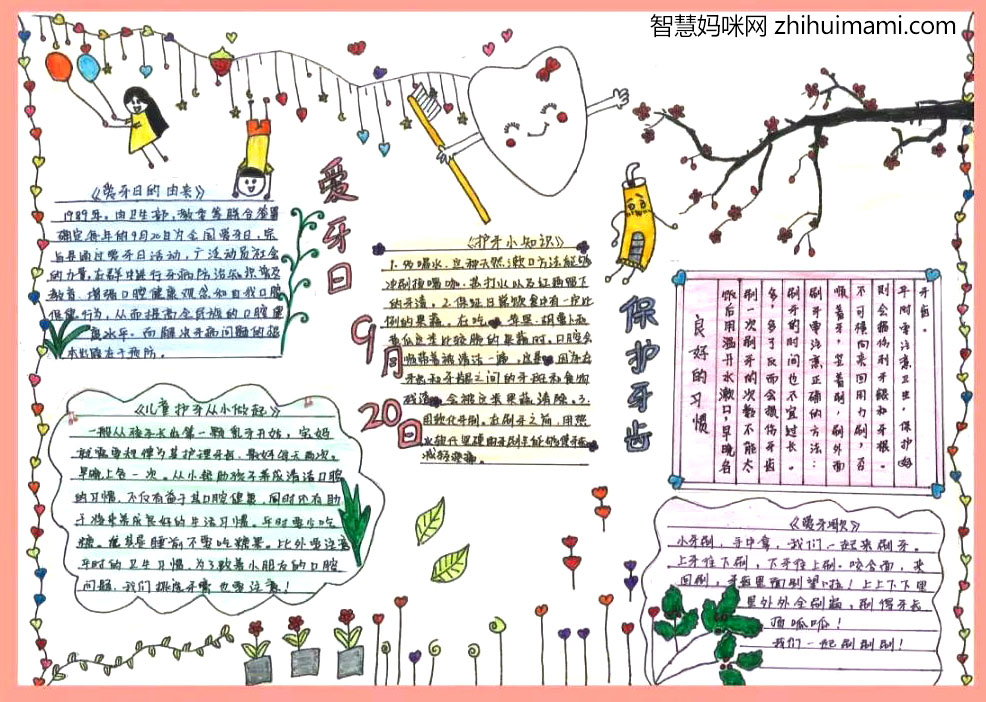 智慧妈咪网 zhihuimami.com
爱牙日
9月
20日
保护牙齿
《爱牙日的由来》
1989年，由卫生部，教委等联合签署
确定每年的9月20日为全国爱牙日，宗
旨是通过爱牙日活动，广泛动员社会
的力量，在群中进行牙病防治知识普及
教育，增强口腔健康观念和自我口腔
保健行为，从而提高全民族的口腔健
康水平。而解决牙病问题的根
本出路在于预防。
《儿童护牙从小做起》
一般从孩子长出第一颗乳牙开始，宝妈
就需要积极为其护理牙齿，最好每天两次，
早晚上各一次。从小帮助孩子养成清洁口腔
的习惯，不仅有益于其口腔健康，同时还有助
于将来养成良好的生活习惯。平时要少吃
糖，尤其是睡前不要吃糖果。比外要注意
平时的卫生习惯，为了数着小朋友的口腔
问题，我们挑选牙膏也要注意！
《护牙小知识》
1.多喝水，这种天然漱口方法能够
冲刷掉咖
的牙渍。2.保证日常饮食中有一定比
例的果蔬。在吃 苹果、胡萝卜和
黄瓜这类比较脆的果蔬时，口腔会
被清洁一遍，
牙齿和牙龈之间的牙斑和食物
残渣 会被这类果蔬清除。3.
用软化牙刷。在刷牙之前，用热
减轻疼痛。
良好的习惯
饭后用温开水漱口，早晚各
刷一次刷牙的次数不能太
多，多了反而会损伤牙齿
刷牙的时间也不宜过长。
刷牙要注意正确的方法：
顺着牙，竖着刷，刷外面
不可横向来回用力刷，否
则会损伤到牙龈和牙根。
平时要注意卫生，保护好
牙齿。
《爱牙歌》
小牙刷，手中拿，我们一起来刷牙。
上牙往下刷，下牙往上刷。咬合面，来
回刷，牙齿里面别望啦！上上下下里
里外外全刷遍，刷得牙齿
顶呱呱！
我们一起刷刷刷！